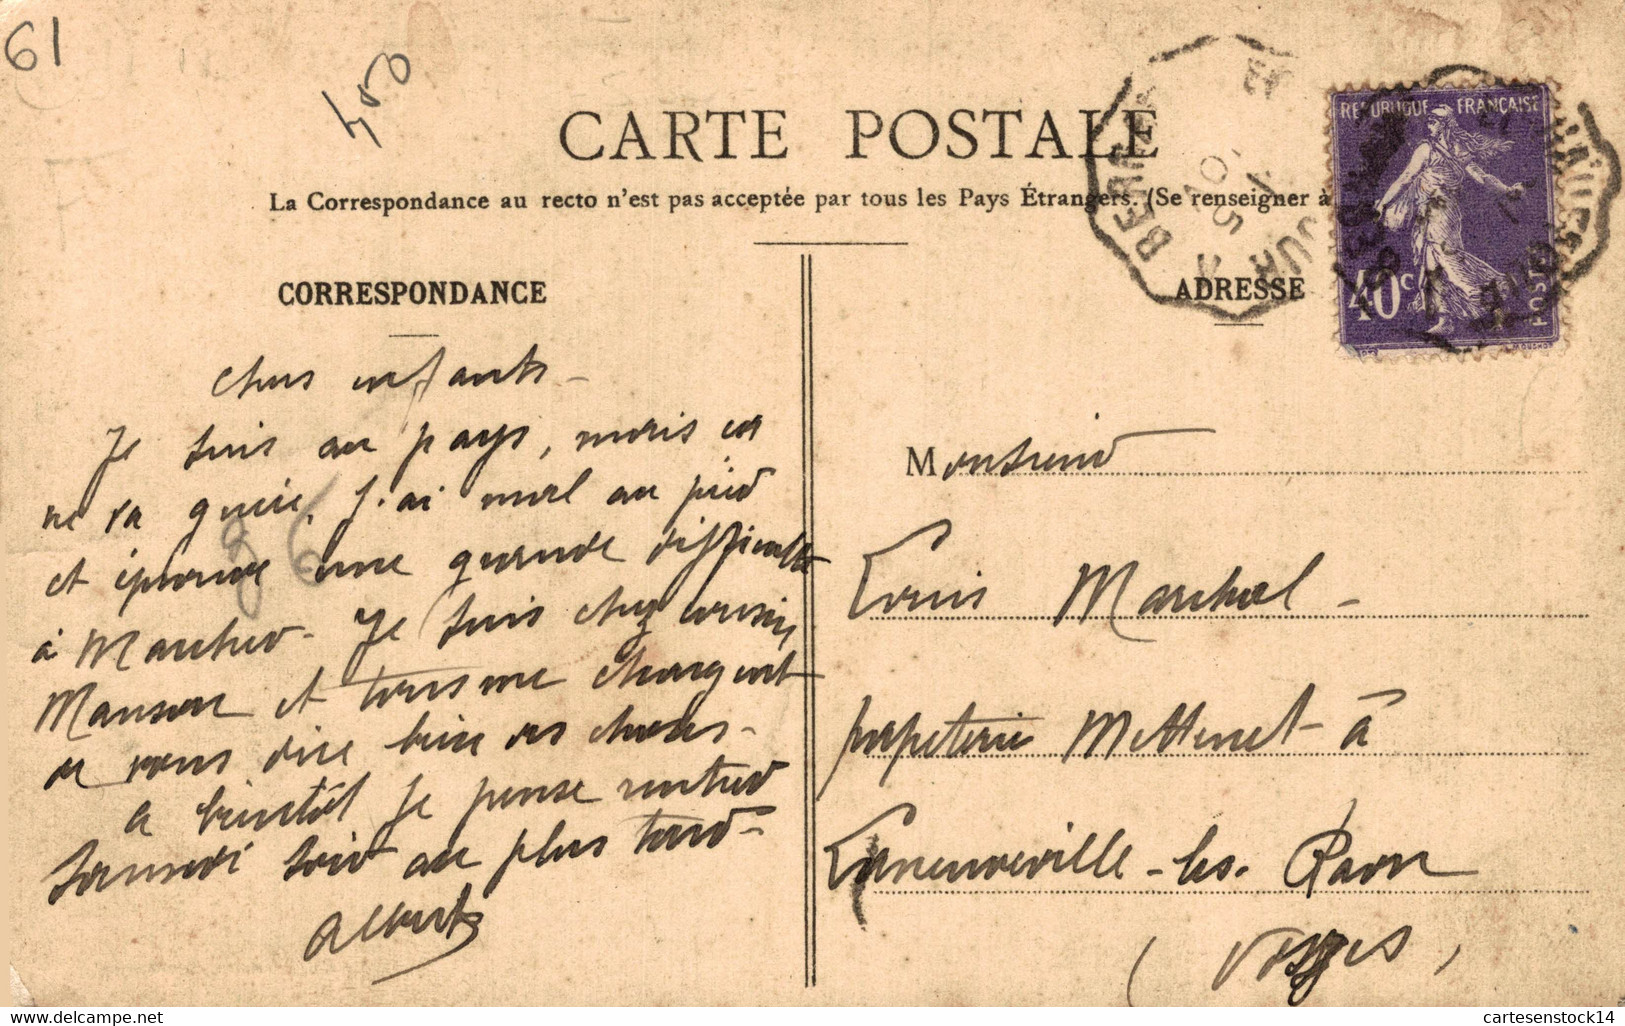 61
400
CARTE POSTALE
La Correspondance au recto n'est pas acceptée par tous les Pays Étrangers. (Se renseigner à
REPUBLIQUE FRANÇAISE
40c
POSTES
CORRESPONDANCE
ADRESSE
Chers enfants -
Je suis au pays, mais ça
ne va guère, j'ai mal au pied
et éprouve une grande difficulté
à marcher - Je suis chez cousin
et tous me chargent
de vous dire bien des choses -
a bientôt je pense rentrer
samedi soir au plus tard -
Albert
86
Monsieur
Louis Marchal -
papeterie Mettenet - à
Laneuveville - les - Raon
(Vosges)
delcampe.net
cartesenstock14